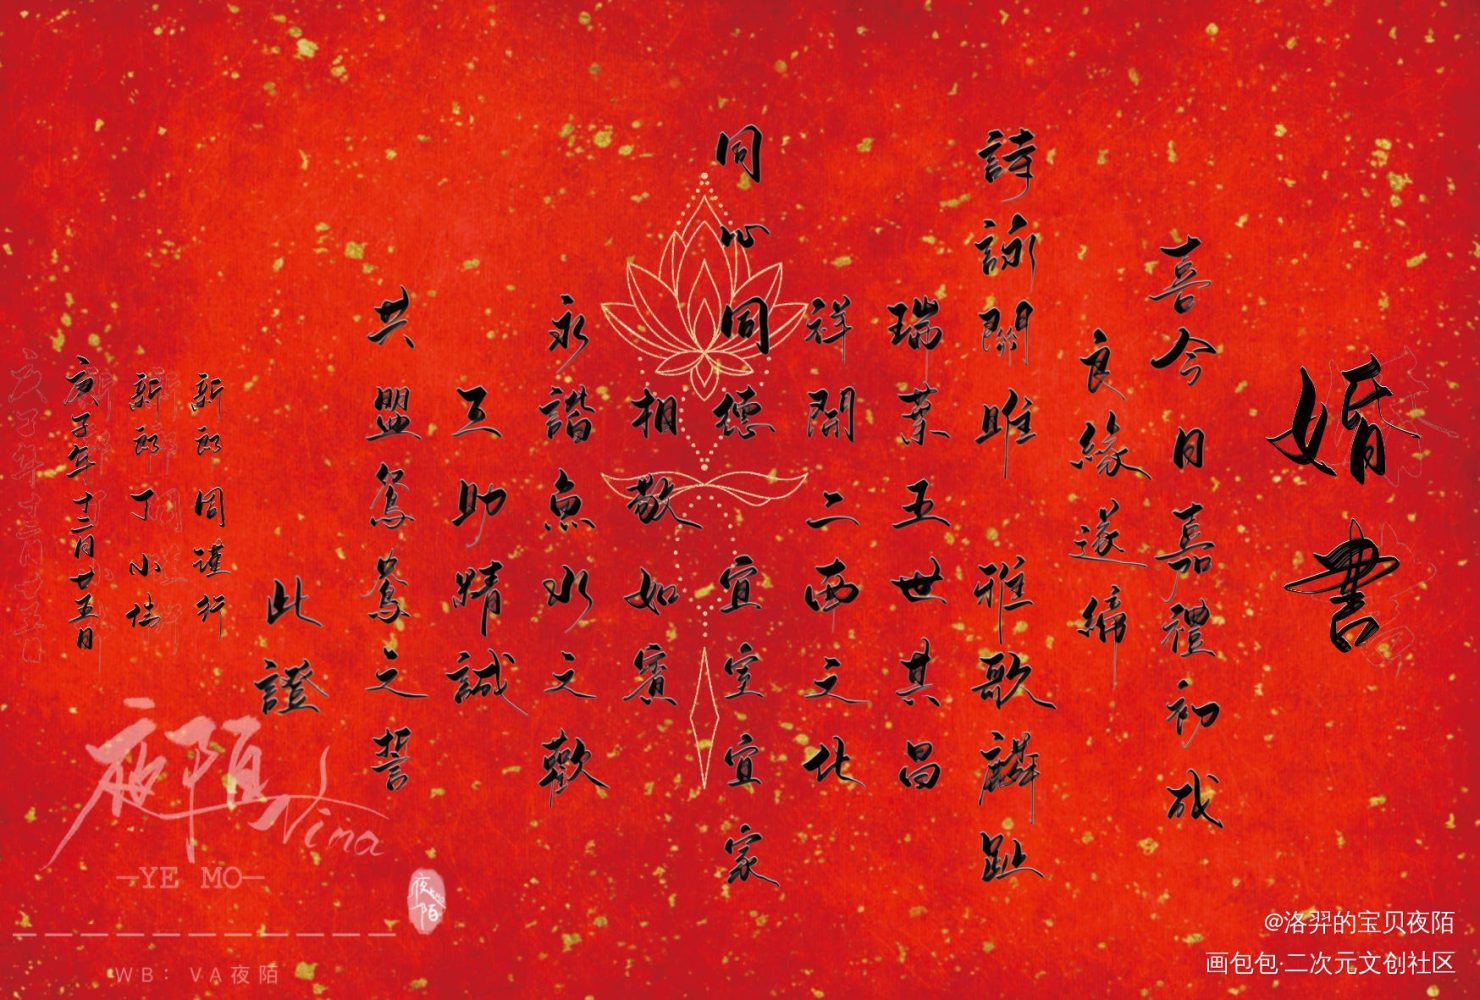 婚書
喜今日嘉禮初成
良緣遂締
詩詠關雎 雅歌麟趾
瑞葉五世其昌
祥開二西之北
同心同德 宜室宜家
相敬如賓
永諧魚水之歡
互助精誠
共盟鴛鴦之誓
此證
新郎 周謹行
新郎 丁小偉
庚子年十二月廿五日
夜陌
Nina
—YE MO—
WB：VA夜陌
夜陌
@洛羿的宝贝夜陌
画包包·二次元文创社区